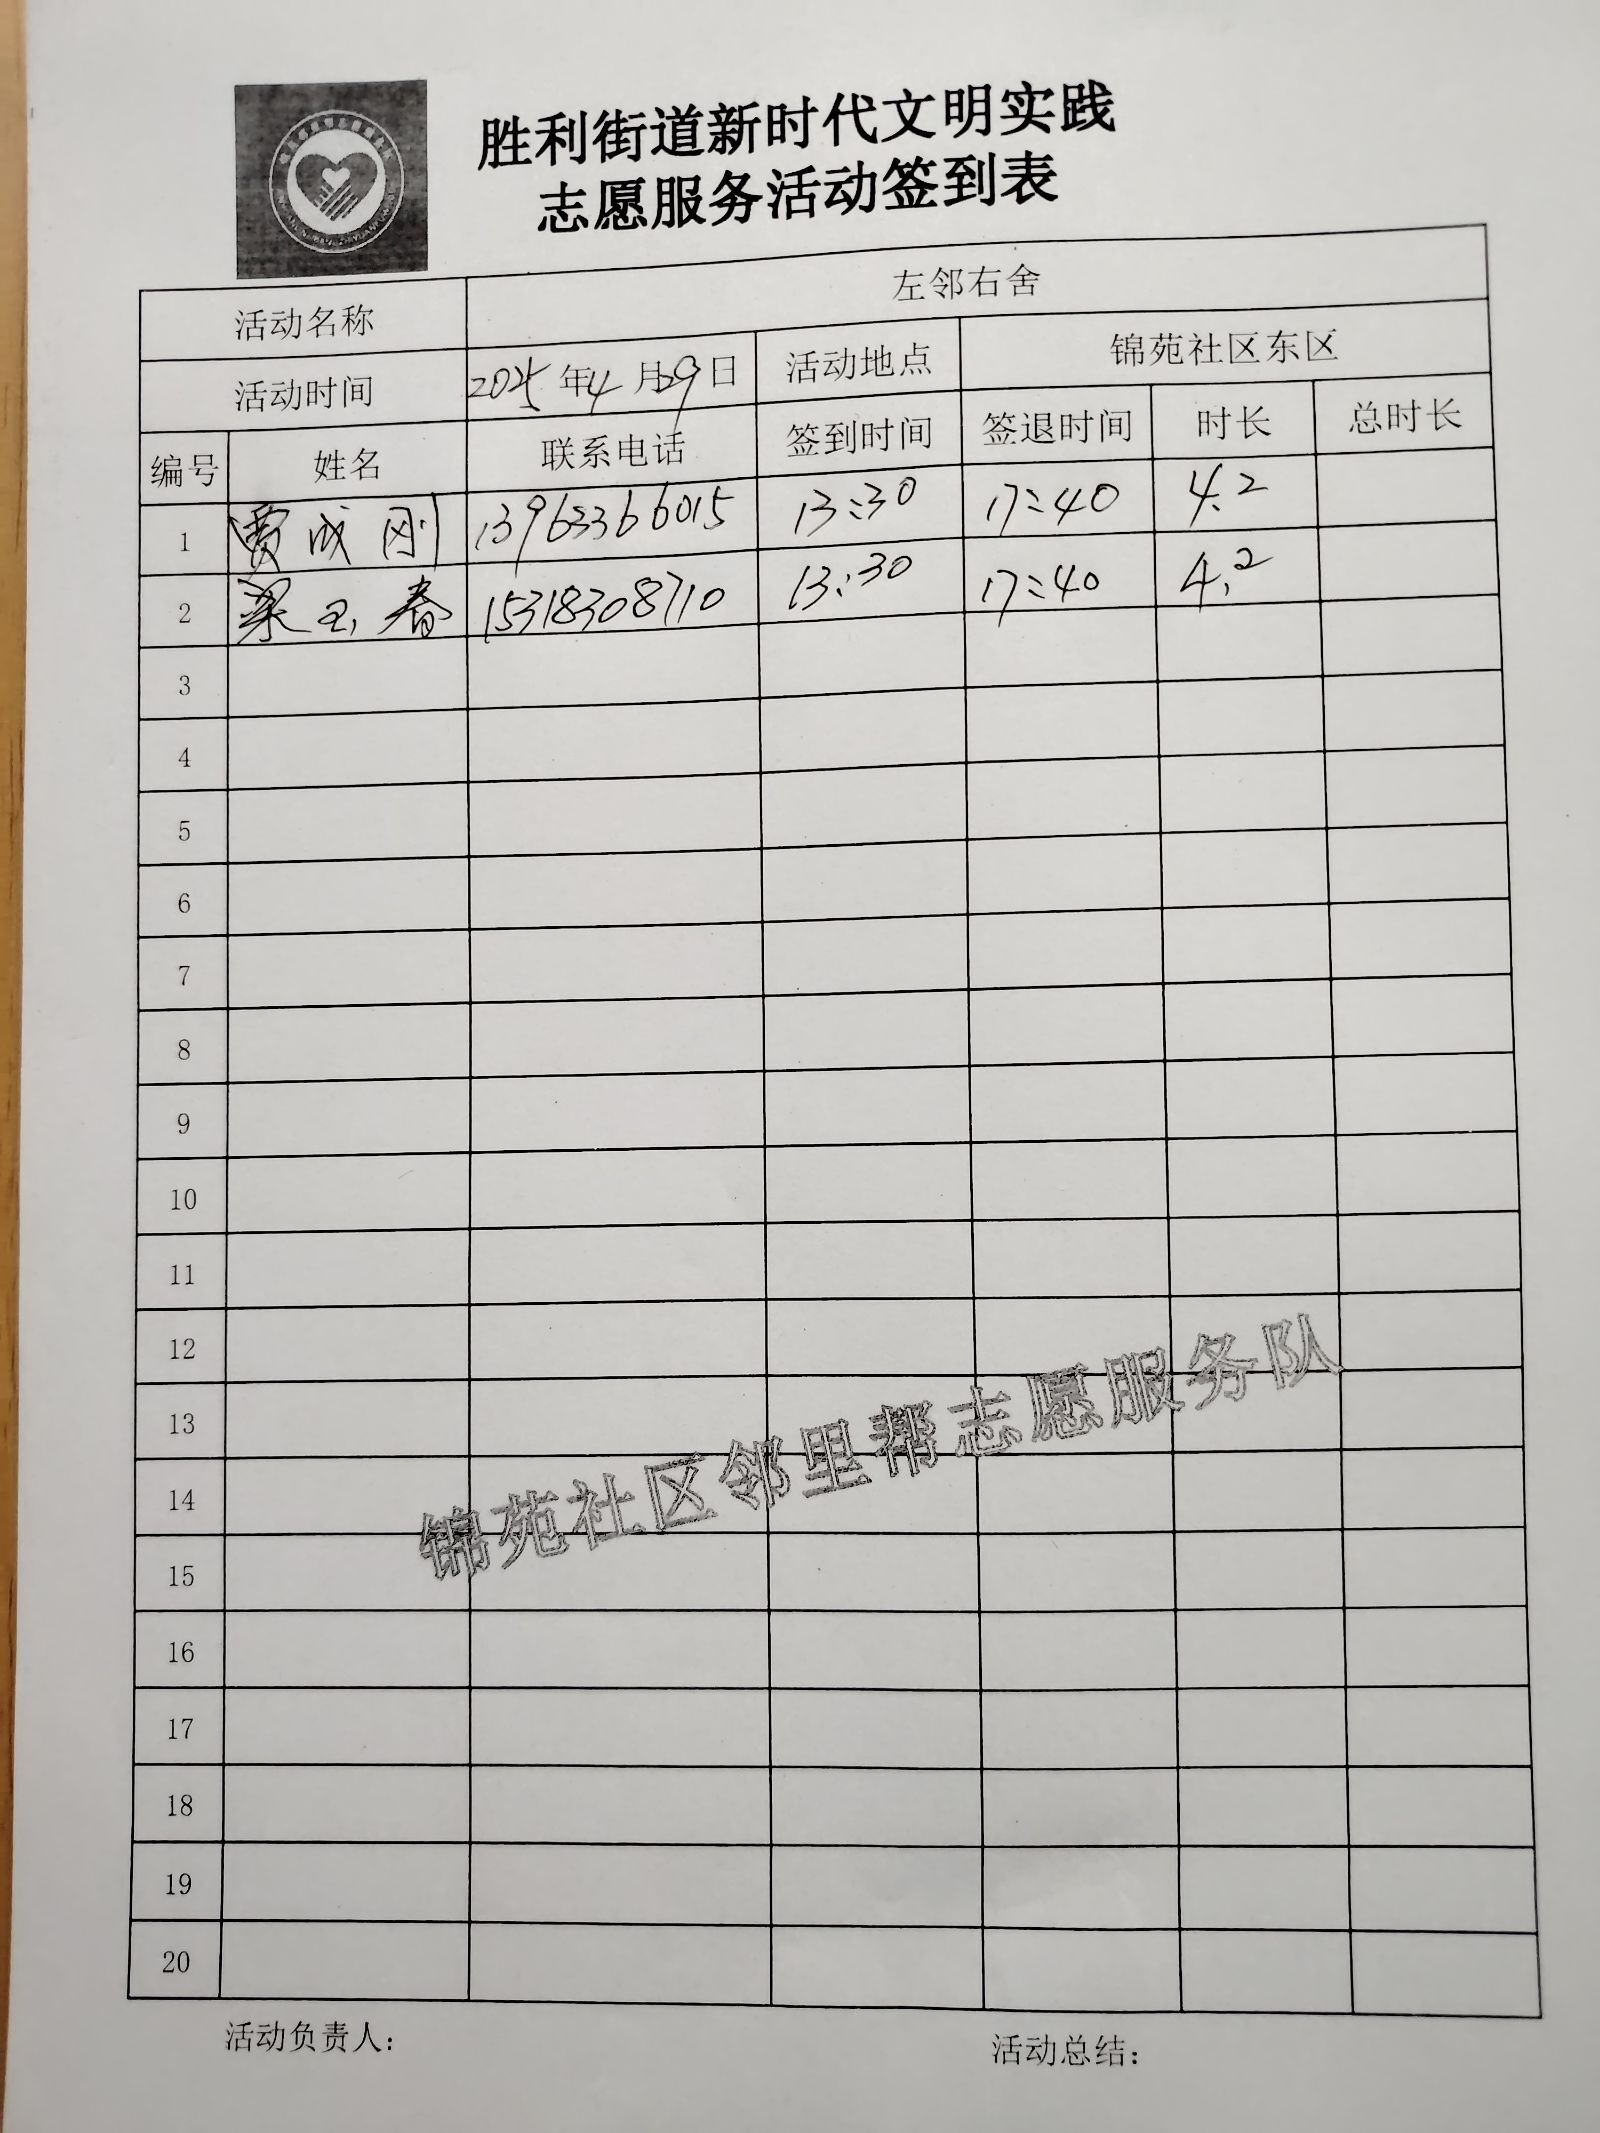 胜利街道新时代文明实践
志愿服务活动签到表
活动名称 左邻右舍
活动时间 2025年4月29日 活动地点 锦苑社区东区
编号 姓名 联系电话 签到时间 签退时间 时长 总时长
1 贾成刚 13963366015 13:30 17:40 4.2
2 梁玉春 15318308710 13:30 17:40 4.2
3
4
5
6
7
8
9
10
11
12
13
14
15
16
17
18
19
20
锦苑社区邻里帮志愿服务队
活动负责人: 活动总结: